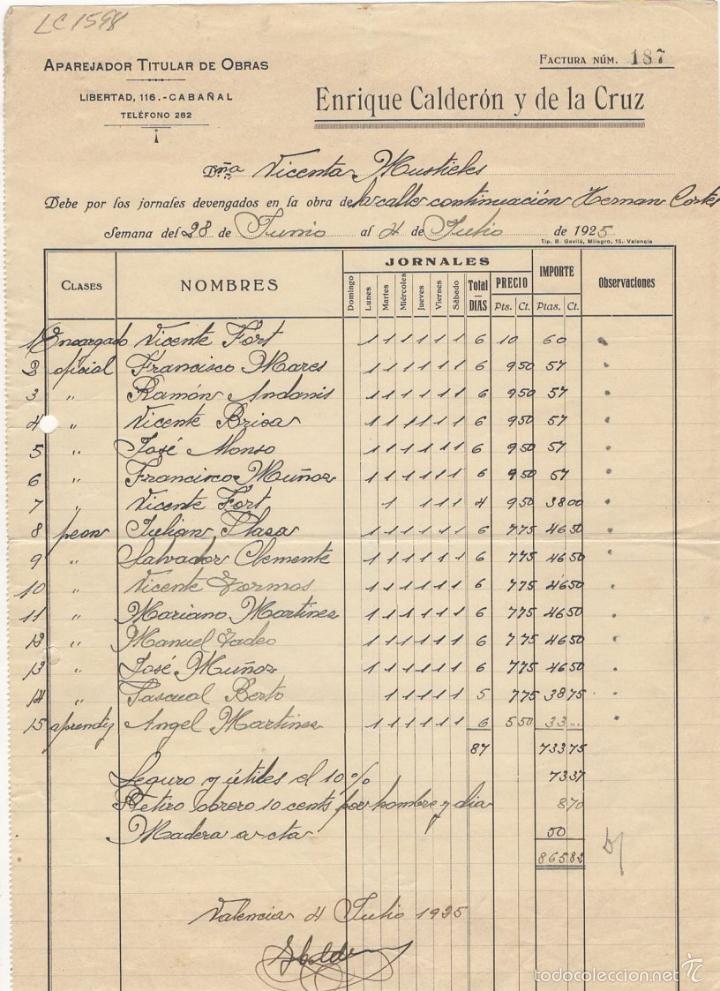 LC 1598
APAREJADOR TITULAR DE OBRAS
LIBERTAD, 116.-CABAÑAL
TELÉFONO 282
FACTURA NÚM. 187
Enrique Calderón y de la Cruz
Dña Vicenta Mustieles
Debe por los jornales devengados en la obra de la calle continuación Hernan Cortes
Semana del 28 de Junio al 4 de Julio de 1925
Tip. B. Gavilá, Milagro, 15.-Valencia
CLASES NOMBRES JORNALES Domingo Lunes Martes Miércoles Jueves Viernes Sábado Total DIAS PRECIO Pts. Ct. IMPORTE Ptas. Ct. Observaciones
1 Encargado Vicente Fort 1 1 1 1 1 1 6 10 60
2 oficial Francisco Mares 1 1 1 1 1 1 6 9 50 57
3 " Ramón Andanis 1 1 1 1 1 1 6 9 50 57
4 " Vicente Brisa 1 1 1 1 1 1 6 9 50 57
5 " José Alonso 1 1 1 1 1 1 6 9 50 57
6 " Francisco Muñoz 1 1 1 1 1 1 6 9 50 57
7 " Vicente Fort 1 1 1 1 4 9 50 38 00
8 peon Julian Plasa 1 1 1 1 1 1 6 7 75 46 50
9 " Salvador Clemente 1 1 1 1 1 1 6 7 75 46 50
10 " Vicente Formos 1 1 1 1 1 1 6 7 75 46 50
11 " Mariano Martinez 1 1 1 1 1 1 6 7 75 46 50
12 " Manuel Tadeo 1 1 1 1 1 1 6 7 75 46 50
13 " José Muñoz 1 1 1 1 1 1 6 7 75 46 50
14 " Pascual Bertó 1 1 1 1 1 5 7 75 38 75
15 aprendiz Angel Martinez 1 1 1 1 1 1 6 5 50 33
87 733 75
Seguro y útiles el 10% 73 37
Retiro obrero 10 cents por hombre y dia 8 70
Madera a cta 50
865 82
Valencia 4 Julio 1925
todocoleccion.net